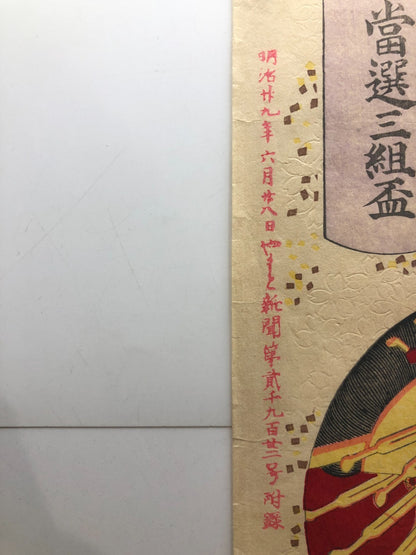 當選三組盃
明治廿九年六月廿八日やまと新聞第貳千九百廿二号附録